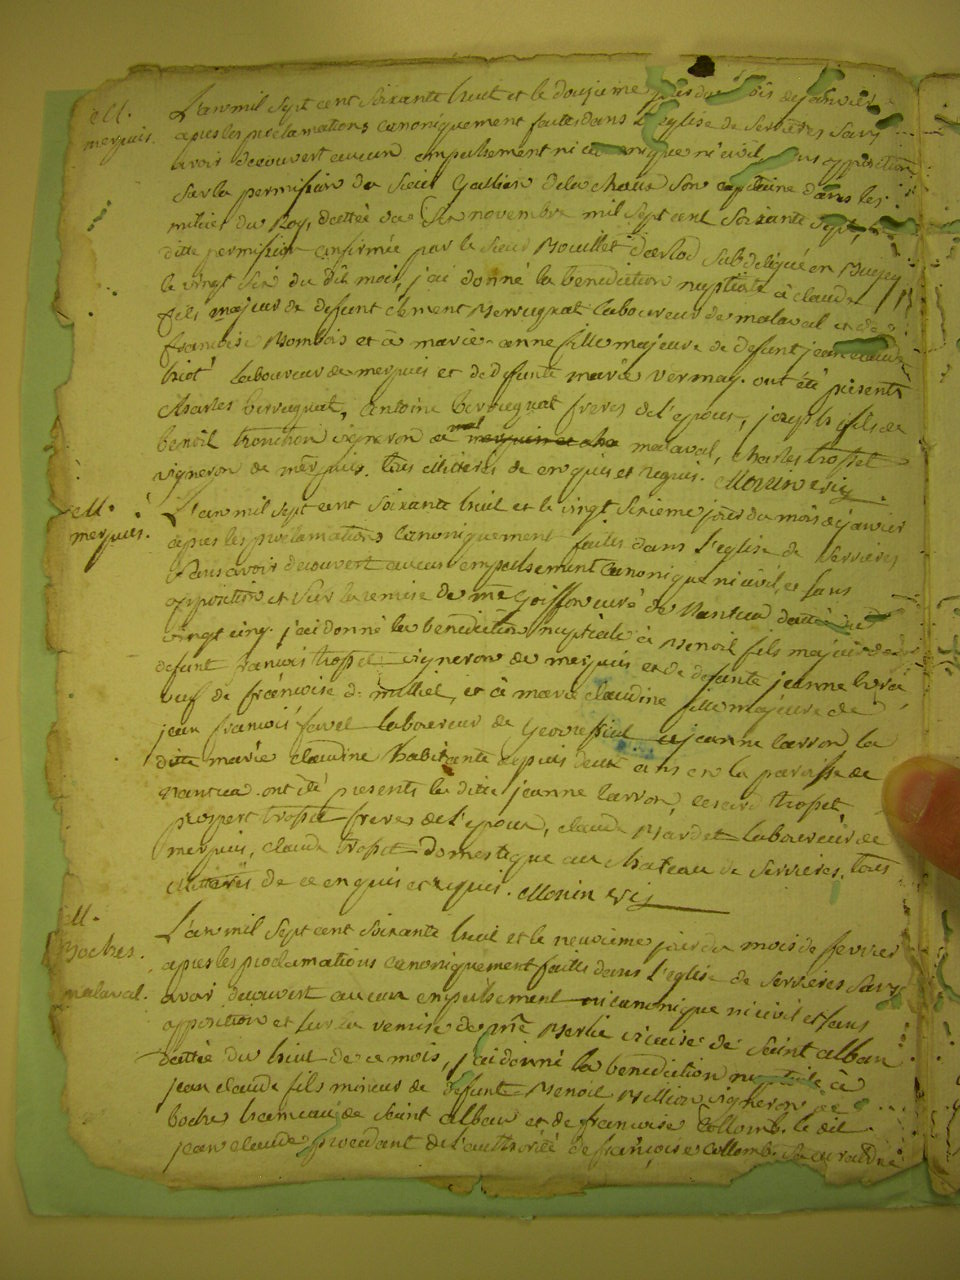 M.
merpuis.
L'an mil sept cent soixante huit et le douzieme jour du mois de janvier
apres les proclamations canoniquement faites dans l'eglise de Serrieres sans
avoir decouvert aucun empeschement ni canonique ni civil, opposition
sur la permission du sieur Gallien de la chaux son capitaine dans les
milices du Roy, dattée du six novembre mil sept cent soixante sept,
ditte permission confirmée par le sieur Bouillet d'arlod subdelegué en Bugey
le vingt six du dit mois, j'ai donné la benediction nuptiale à claude
fils majeur de defunt clement laboureur de malaval et de
francoise et à marie anne fille majeure de defunt jean claude
laboureur de merpuis et de defunte marie vermay. ont été présents
charles berrugnat, antoine berrugnat freres de l'epoux, joseph fils de
benoit tronchon vigneron de malaval, charles trosset
vigneron de merpuis. tous illitérés de enquis et requis. Monin vic
M.
merpuis.
L'an mil sept cent soixante huit et le vingt sixieme jour du mois de janvier
apres les proclamations canoniquement faites dans l'eglise de Serrieres
sans avoir decouvert aucun empeschement canonique ni civil, et sans
opposition et sur la remise de me Goiffon curé de Nantua dattée du
vingt cinq. j'ai donné la benediction nuptiale à Benoit fils majeur de
defunt francois trosset vigneron de merpuis et de defunte jeanne
veuf de francoise et à marie claudine fille majeure de
jean francois favel laboureur de Geovressiat et jeanne larron la
ditte marie claudine habitante depuis deux ans en la paroisse de
Nantua. ont été presents la ditte jeanne larron, trosset
prospert trosset freres de l'epoux, claude laboureur de
merpuis, claude trosset domestique au chateau de Serrieres. tous
illitérés de ce enquis et requis. Monin vic
M.
Boches.
malaval.
L'an mil sept cent soixante huit et le neuvieme jour du mois de fevrier
apres les proclamations canoniquement faites dans l'eglise de Serrieres sans
avoir decouvert aucun empeschement ni canonique ni civil et sans
opposition et sur la remise de me vicaire de Saint alban
dattée du huit de ce mois, j'ai donné la benediction nuptiale à
jean claude fils mineur de defunt Benoit Million vigneron de
boches hameau de Saint alban et de francoise Collomb. le dit
jean claude procedant de l'authorité de françoise collomb.